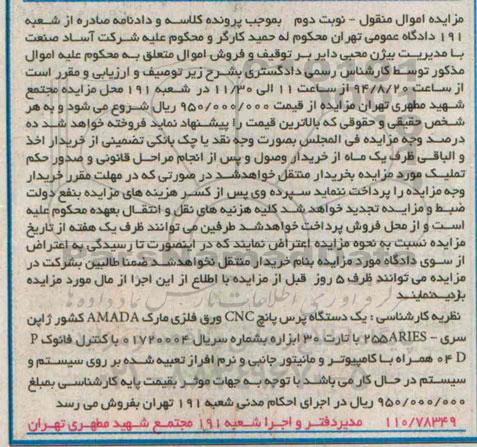 مزایده اموال منقول - نوبت دوم    بموجب پرونده کلاسه و دادنامه صادره از شعبه
۱۹۱ دادگاه عمومی تهران محکوم له حمید کارگر و محکوم علیه شرکت آساد صنعت
با مدیریت بیژن محبی دابر بر توقیف و فروش اموال متعلق به محکوم علیه اموال
مذکور توسط کارشناس رسمی دادگستری بشرح زیر توصیف و ارزیابی و مقرر است
از ساعت ۹۴/۸/۲۰ از ساعت ۱۱ الی ۱۱/۳۰ در شعبه ۱۹۱ محل مزایده مجتمع
شهید مطهری تهران مزایده از قیمت ۹۵۰/۰۰۰/۰۰۰ ریال شروع می شود و به هر
شخص حقیقی و حقوقی که بالاترین قیمت را پیشنهاد نماید فروخته خواهد شد ده
درصد وجه مزایده فی المجلس بصورت وجه نقد یا چک بانکی تضمینی از خریدار اخذ
و الباقی ظرف یک ماه از خریدار وصول و پس از انجام مراحل قانونی و صدور حکم
تملیک مورد مزایده بخریدار منتقل خواهدشد در صورتی که در مهلت مقرر خریدار
وجه مزایده را پرداخت ننماید سپرده وی پس از کسر هزینه های مزایده بنفع دولت
ضبط و مزایده تجدید خواهد شد کلیه هزنیه های نقل و انتقال بعهده محکوم علیه
است و از محل فروش پرداخت خواهدشد طرفین می توانند ظرف یک هفته از تاریخ
مزایده نسبت به نحوه مزایده اعتراض نمایند که در اینصورت تا رسیدگی به اعتراض
از سوی دادگاه مورد مزایده بنام خریدار منتقل نخواهدشد ضمنا طالبین بشرکت در
مزایده می توانند ظرف ۵ روز قبل از مزایده با اطلاع از این اجرا از مال مورد مزایده
بازدیدنمایند
نظریه کارشناسی : یک دستگاه پرس پانچ CNC ورق فلزی مارک AMADA کشور ژاپن
سری - ۲۵۵ARIES با تارت ۳۰ ابزاره بشماره سریال ۰۱۷۲۰۰۰۴ با کنترل فانوک P
۰۴ D همراه با کامپیوتر و مانیتور جانبی و نرم افراز تعبیه شده بر روی سیستم و
سیستم در حال کار می باشد با توجه به جهات موثر بقیمت پایه کارشناسی بمبلغ
۹۵۰/۰۰۰/۰۰۰ ریال در اجرای احکام مدنی شعبه ۱۹۱ تهران بفروش می رسد
۱۱۰/۷۸۳۴۹    مدیردفتر و اجرا شعبه ۱۹۱ مجتمع شهید مطهری تهران